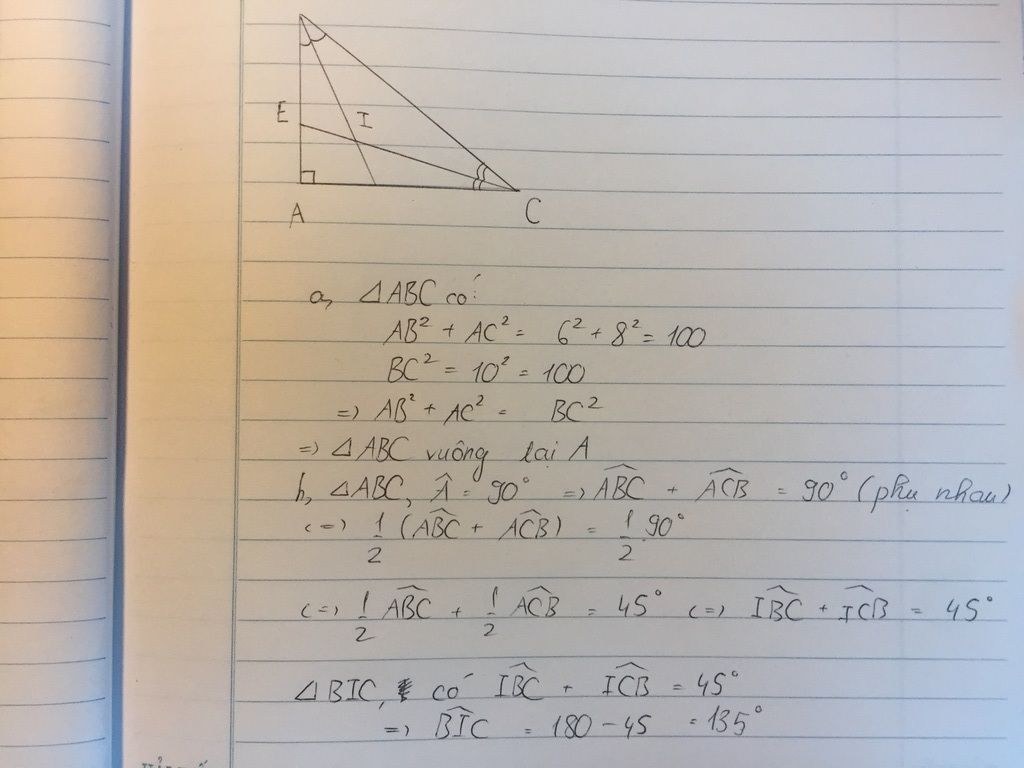 E
I
A
C
a, △ABC có:
AB² + AC² = 6² + 8² = 100
BC² = 10² = 100
=> AB² + AC² = BC²
=> △ABC vuông tại A
b, △ABC, Â = 90° => ABC + ACB = 90° (phụ nhau)
<=> 1/2 (ABC + ACB) = 1/2 . 90°
<=> 1/2 ABC + 1/2 ACB = 45° <=> IBC + ICB = 45°
△BIC, có IBC + ICB = 45°
=> BIC = 180 - 45 = 135°